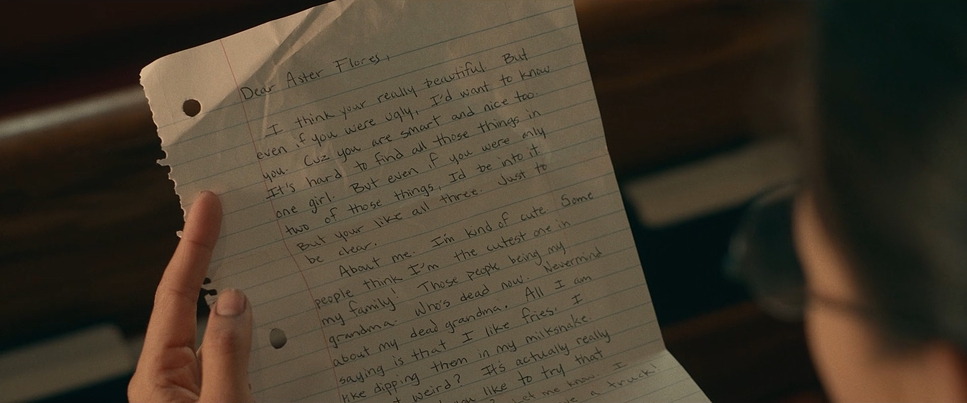 Dear Aster Flores,
I think your really beautiful. But
even if you were ugly, I'd want to know
you. Cuz you are smart and nice too.
It's hard to find all those things in
one girl. But even if you were only
two of those things, I'd be into it.
But your like all three. Just to
be clear.
About me. I'm kind of cute. Some
people think I'm the cutest one in
my family. Those people being my
grandma. Who's dead now. Nevermind
about my dead grandma. All I am
saying is that I like fries. I
like dipping them in my milkshake.
weird? It's actually really
you like to try that
? Let me know. I
a truck!